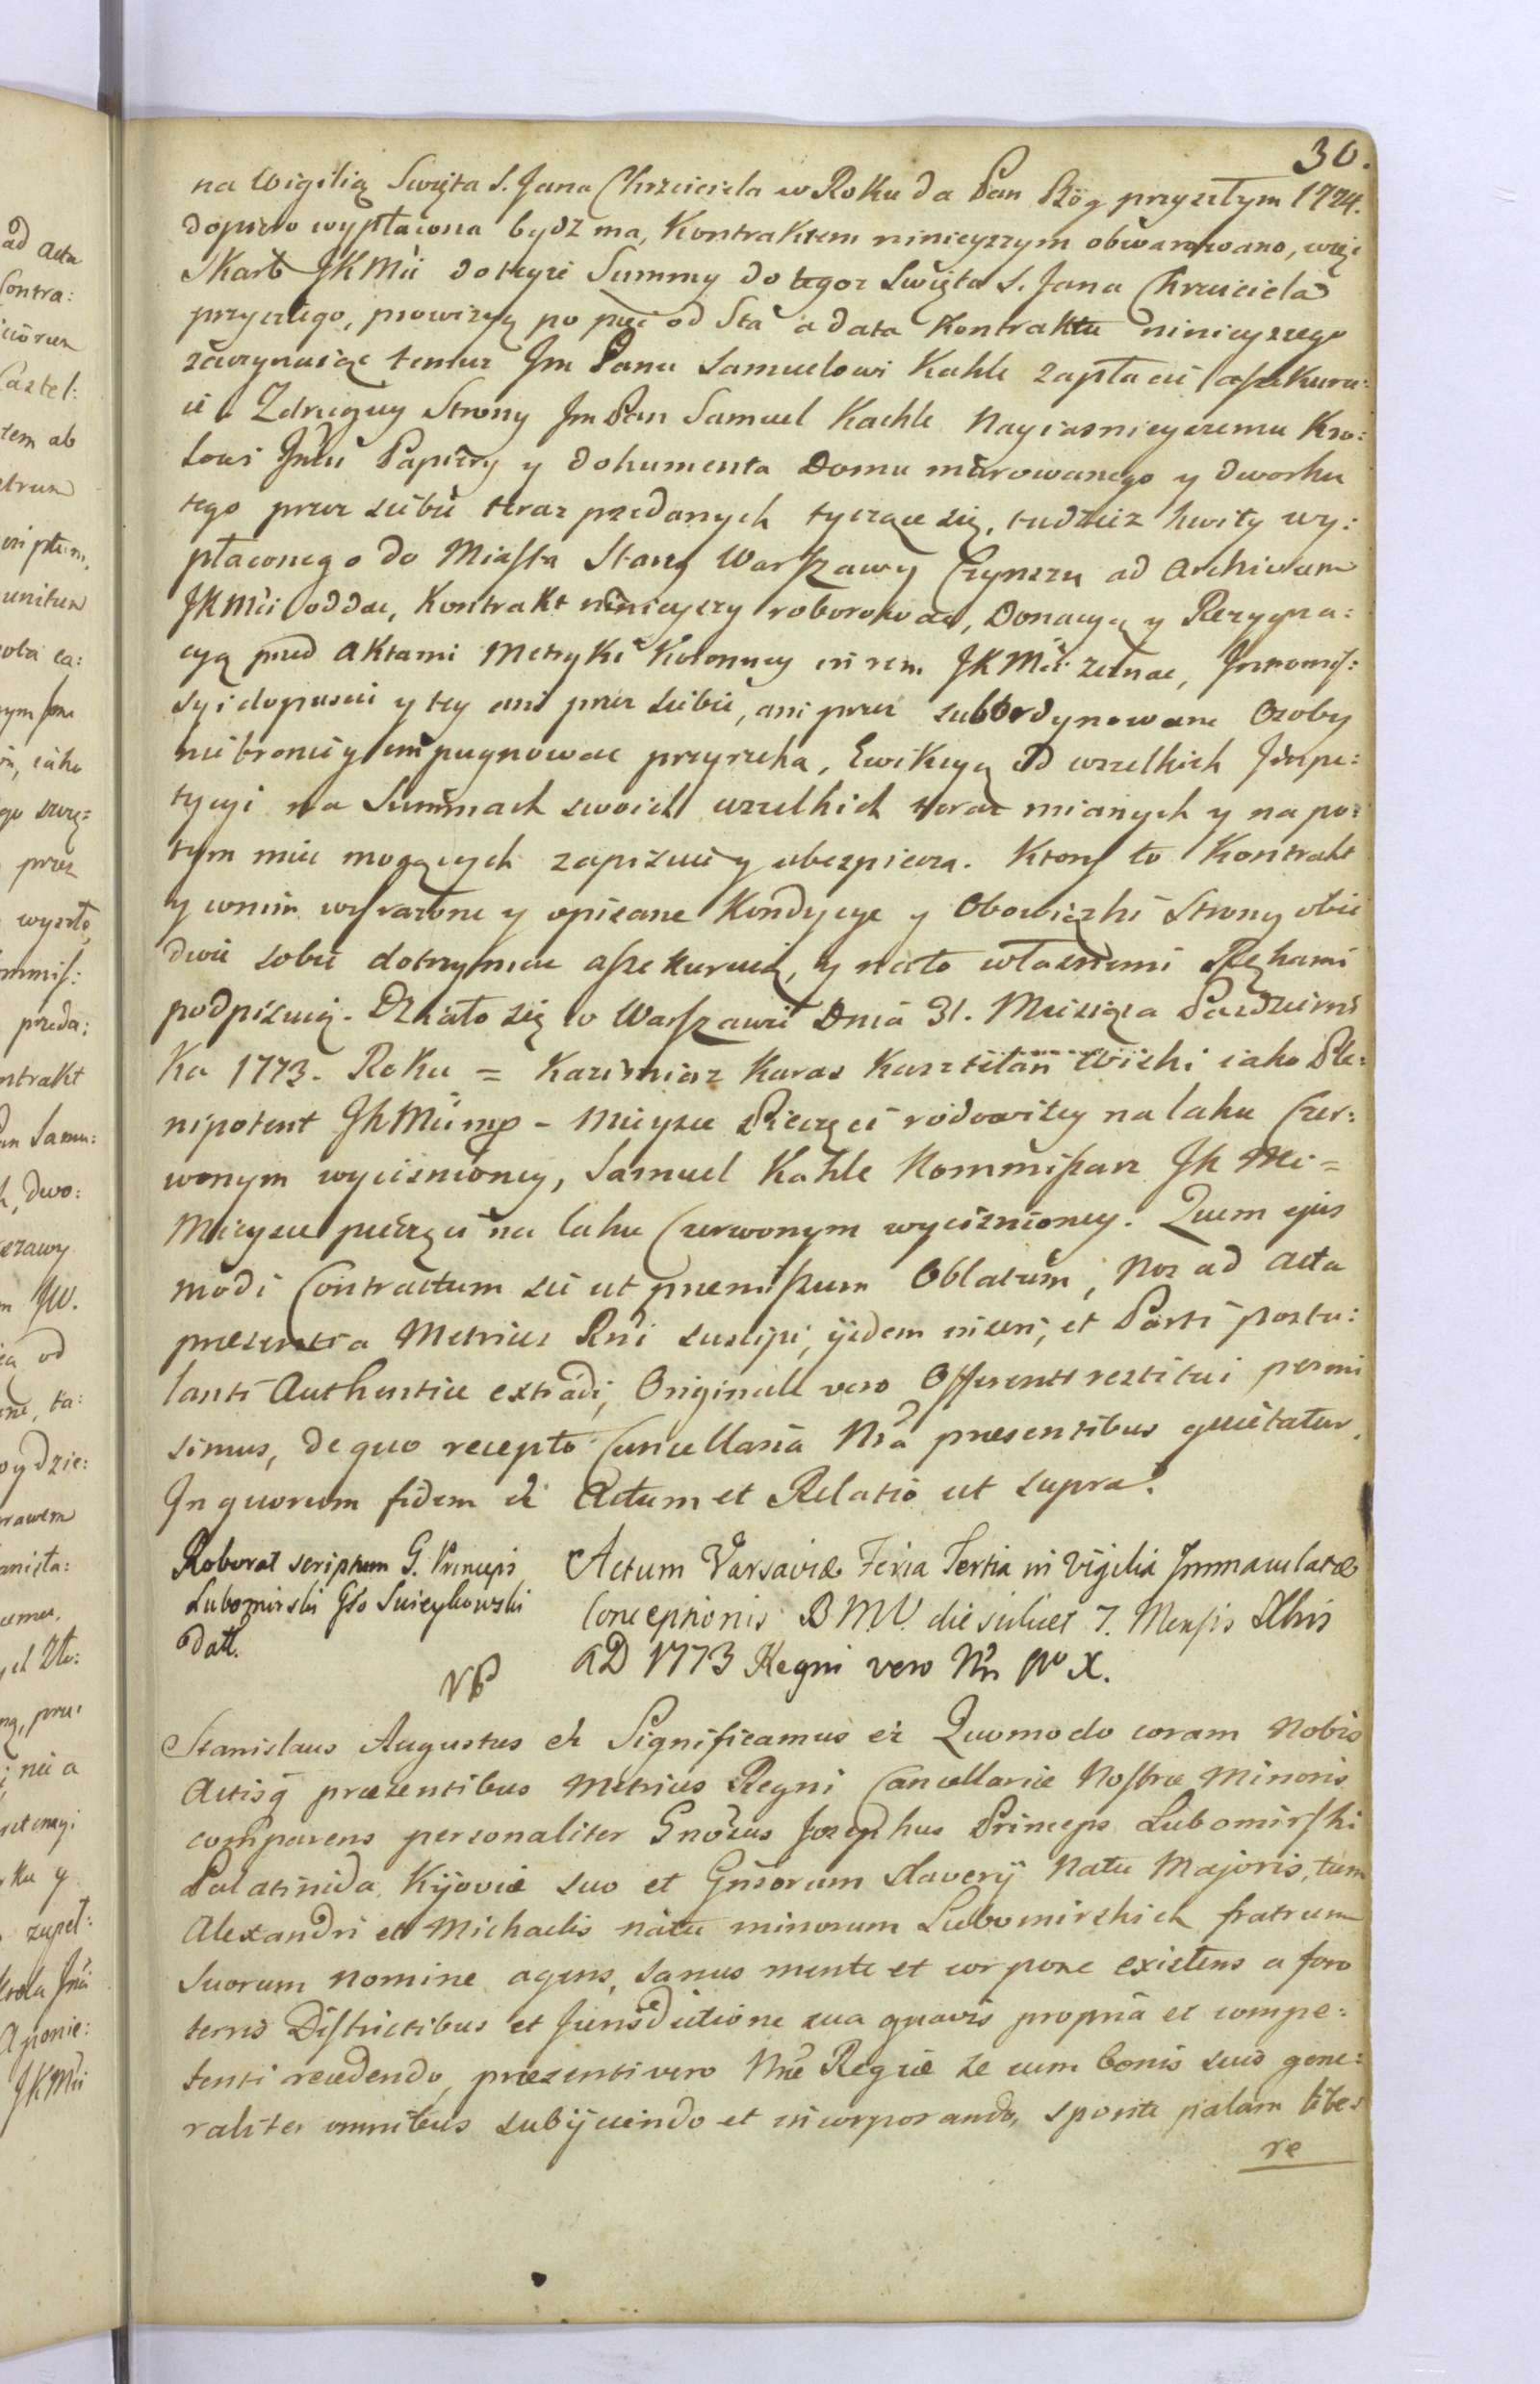 30.
na Wigilią Swięta S. Jana Chrzciciela w Roku da Pan Bóg przyszłym 1774.
dopiero wypłacona bydz ma, Kontraktem ninieyszym obwarowano, więc
Skarb JKMći do teyże Summy do tegoz Swięta S. Jana Chrzciciela
przyszłego, prowizyą po pięć od Sta a data Kontraktu ninieyszego
zaczynaiąc temuz Jm Panu Samuelowi Kahle zapłacić assekuru:
ie. Zdrugiey Strony Jm Pan Samuel Kachle Nayiasnieyszemu Kro:
lowi Jmći Papiery y dokumenta Domu murowanego y dworku
tego przez siebie teraz przedanych tyczące się, tudziez kwity wy:
płaconego do Miasta Starey Warszawy Czynszu ad Archivum
JKMći oddac, Kontrakt ninieyszy roborowac, Donacyą y Rezygna:
cyą przed Aktami Metryki Koronney in rem JKMći zeznac, Jntromis:
syi dopuscić y tey ani przez siebie, ani przez subordynowane Osoby
nie bronić y impugnowac przyrzeka, Ewikcyą od wszelkich Jmpe:
tycyi na Summach swoich wszelkich teraz mianych y na po:
tym miec mogących zapisuie y ubezpiecza. Ktory to Kontrakt
y wnim wyrazone y opisane Kondycye y Obowiązki Strony obie
dwie sobie dotrzymac assekuruią, y nato własnemi Rękami
podpisuią. Działo się w Warszawie Dnia 31. Miesiąca Pazdzierni
Ka 1773. Roku = Kazimierz Karas Kasztelan Wiski iako Ple:
nipotent JKMći mp - Mieysce Pieczęci rodowitey na laku Czer:
wonym wycisnioney, Samuel Kahle Kommissarz JK Mci =
Mieysce pieczęci na laku Czerwonym wycisnioney. Quem ejus
modi Contractum sic ut praemissum Oblatum, Nos ad Acta
praesentia Metrices Rni suscipi, ijsdem inseri, et Parti postu:
lanti Authentice extradi, Originale vero Offerenti restitui permi
simus, de quo recepto Cancellaria Nra praesentibus quietatur.
In quorum fidem &c Actum et Relatio ut supra.
Roborat scriptum G. Princeps
Lubomirski Gło Suicykowski
datt.
Actum Varsaviæ Feria Tertia in Vigilia Immaculatæ
Conceptionis B.M.V. die scilicet 7. Mensis Xbris
AD 1773 Regni vero Nri No X.
NB
Stanislaus Augustus &c Significamus &c Quomodo coram Nobis
Actisq praesentibus Metrices Regni Cancellariæ Nostræ Minoris
comparens personaliter Gnosus Josephus Princeps Lubomirski
Palatinida Kijoviæ suo et Gnsorum Xaverij Natu Majoris, tum
Alexandri et Michaelis natu minorum Lubomirskich fratrum
suorum nomine agens, sanus mente et corpore existens a foro
terris Districtibus et Jurisdictione sua quavis propria et compe:
tenti recedendo, praesenti vero Nræ Regiæ se cum bonis suis gene:
raliter omnibus subijciendo et incorporando, sponte palam libe:
re